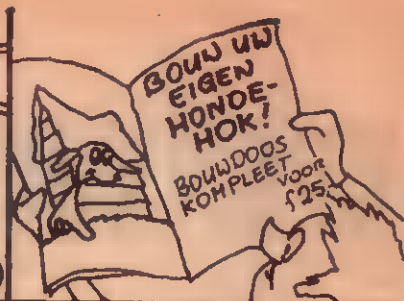 BOUW UW
EIGEN
HONDE-
HOK!
BOUWDOOS
KOMPLEET
VOOR
ƒ25.